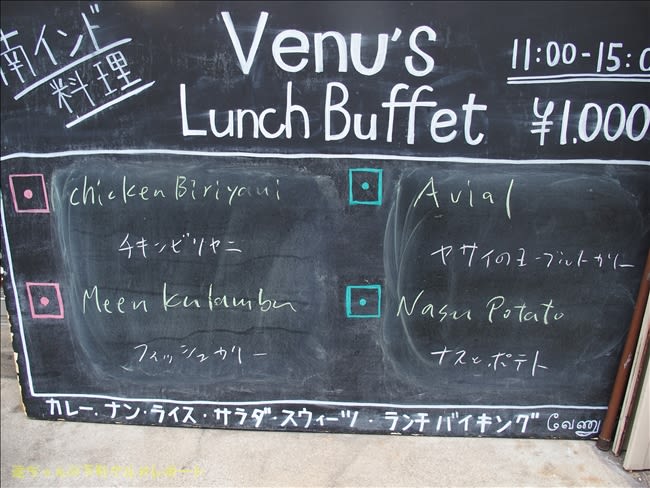 南インド
料理
Venu's
Lunch Buffet
11:00-15:0
¥1,000
chicken Biriyani
チキンビリヤニ
Avial
ヤサイのヨーグルトカリー
Meen kulambu
フィッシュカリー
Nasu Potato
ナスとポテト
カレー・ナン・ライス・サラダ・スウィーツ・ランチバイキング வேணு